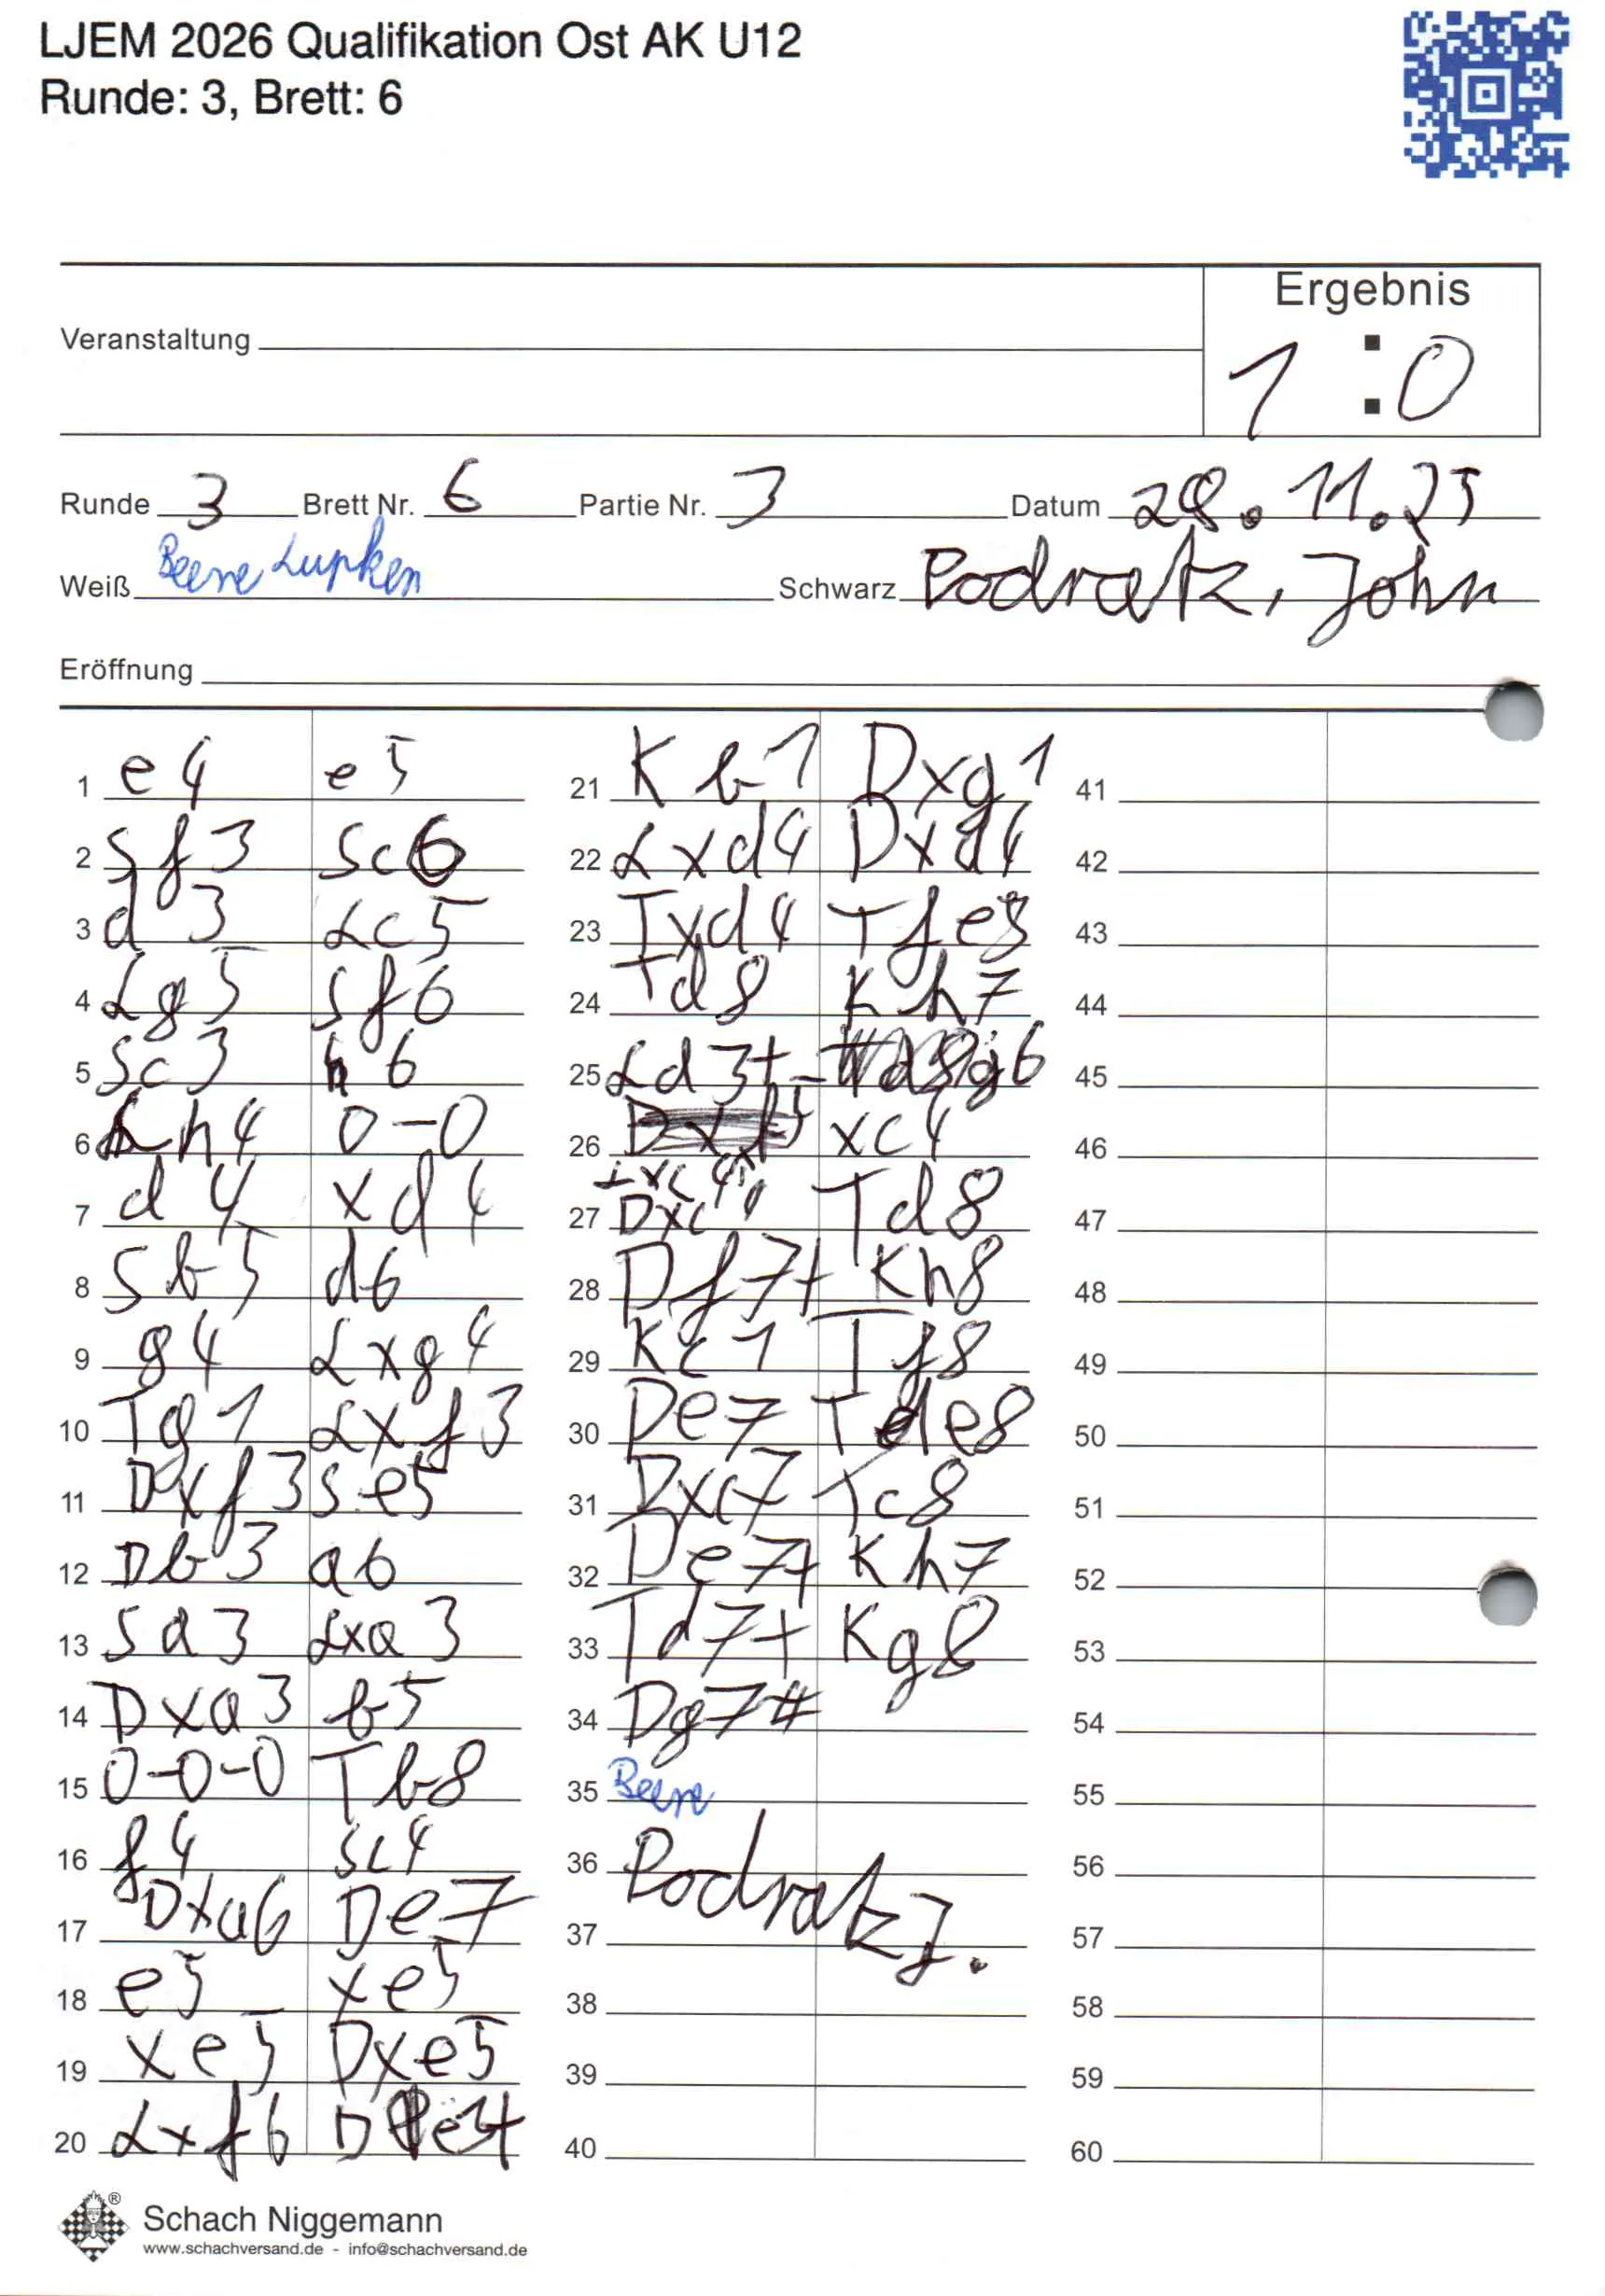 LJEM 2026 Qualifikation Ost AK U12
Runde: 3, Brett: 6
Ergebnis
Veranstaltung
1 : 0
Runde 3 Brett Nr. 6 Partie Nr. 3 Datum 28.11.25
Weiß Beere Lupken Schwarz Podratz, John
Eröffnung
1 e4 e5
2 Sf3 Sc6
3 d3 Lc5
4 Lg5 Sf6
5 Sc3 h6
6 Lh4 0-0
7 d4 xd4
8 Sb5 d6
9 g4 Lxg4
10 Tg1 Lxf3
11 Dxf3 Se5
12 Db3 a6
13 Sa3 Lxa3
14 Dxa3 b5
15 0-0-0 Tb8
16 f4 Sc4
17 Dxa6 De7
18 e5 xe5
19 xe5 Dxe5
20 Lxf6 De3+
21 Kb1 Dxg1
22 Lxd4 Dxd4
23 Txd4 Tfe8
24 Td8 Kh7
25 Ld3+ g6
26 Lxc4 xc4
27 Dxc4 Td8
28 Df7+ Kh8
29 Kc1 Tf8
30 De7 Tde8
31 Dxc7 Tc8
32 De7+ Kh7
33 Td7+ Kg8
34 Dg7#
35 Beere
36 Podratz J.
37
38
39
40
41
42
43
44
45
46
47
48
49
50
51
52
53
54
55
56
57
58
59
60
® Schach Niggemann
www.schachversand.de - info@schachversand.de